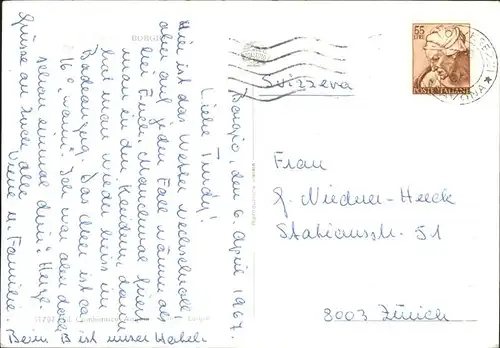 Borgio, den 6. April 1967.
Liebe Trudy!
Hier ist das Wetter wechselvoll,
aber auf jeden Fall wärmer als
bei Euch. Manchmal friert
man in den Kleidern, dann
hat man wieder heiss im
Badeanzug. Das Meer ist ca.
16° "warm". Ich war aber doch
schon einmal drin. Herzl.
Grüsse an Euch alle
Vreni u. Familie.
Beim B ist unser Hotel.
BORGIO
55
LIRE
POSTE ITALIANE
SAVONA
Svizzera
Frau
G. Niedner-Heck
Stationsstr. 51
8003 Zürich